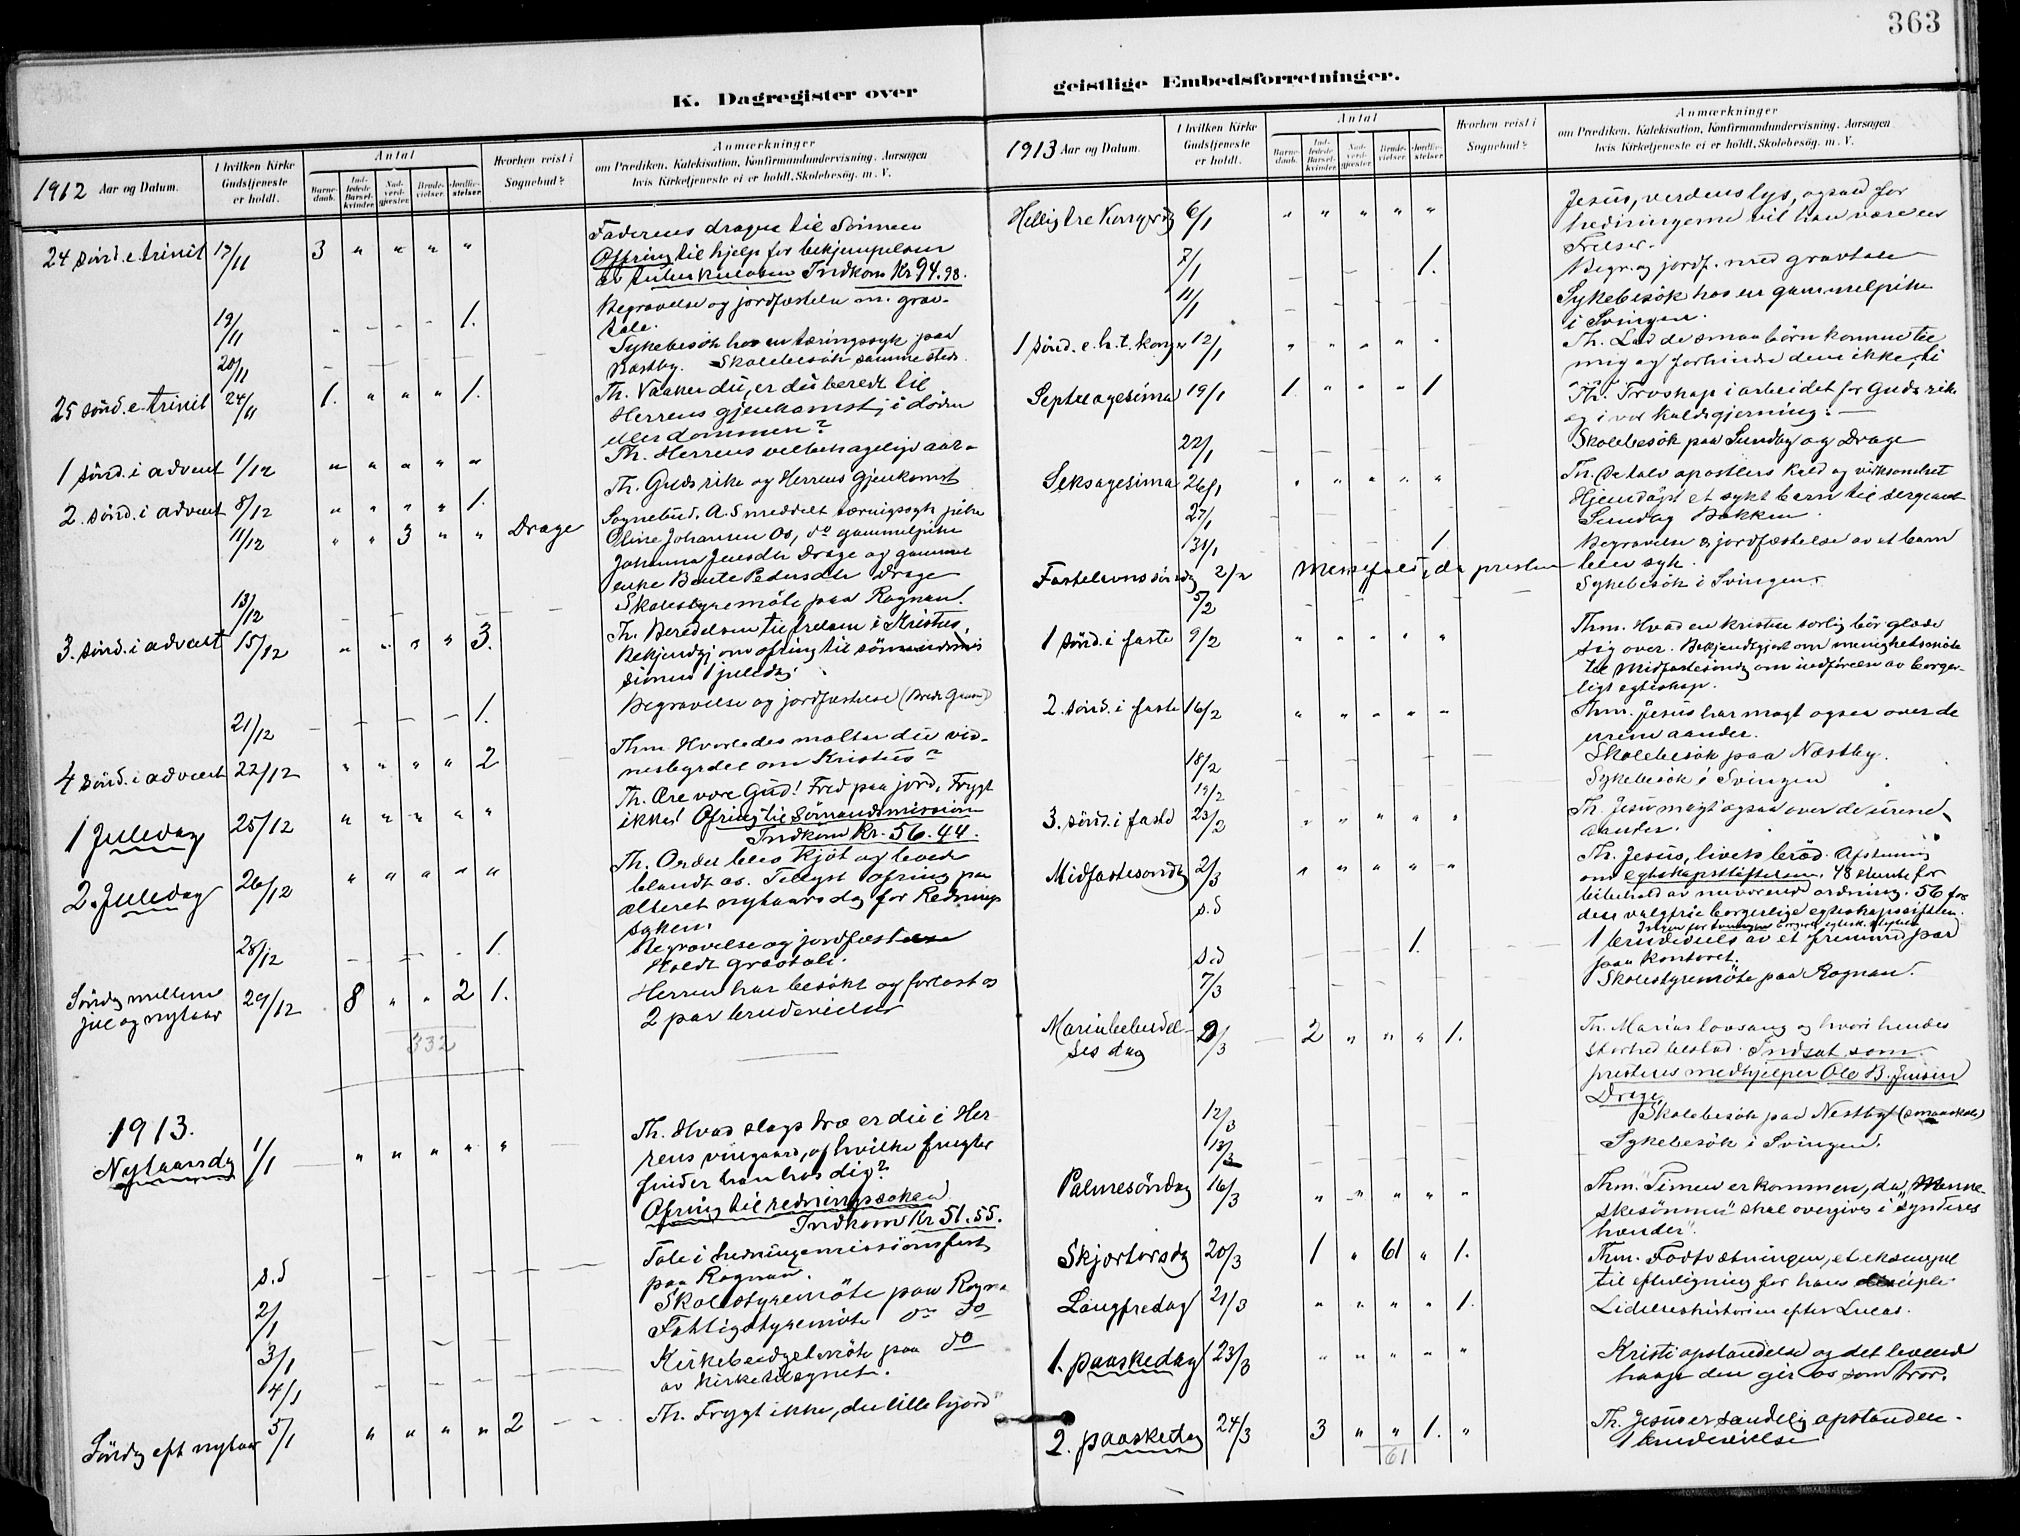 363
K. Dagregister over
geistlige Embedsforretninger.
1912 Aar og Datum.
I hvilken Kirke Gudstjeneste er holdt.
Antal
Barnedaab.
Indledede Barselkvinder.
Nadverdgjester.
Brudevielser.
Jordfæstelser.
Hvorhen reist i Sognebud?
Anmærkninger
om Prædiken, Katekisation, Konfirmandundervisning, Aarsagen
hvis Kirketjeneste ei er holdt, Skolebesøg, m. V.
24 sönd. e. trinit 17/11 3 " " " "
Faderens dragen til Sönnen
Ofring til hjelp for bekjempelsen
av tuberkulosen Indkom Kr 94.98.
19/11 1.
Begravelse og jordfæstelse m. grav-
tale.
20/11
Sykebesök hos en tæringssyk paa
Næstby. Skolebesök sammesteds.
25 sönd. e. trinit 24/11 1. " " " 1.
Th. Vaaker du, er du beredt til
Herrens gjenkomst, i döden
eller dommen?
1 sönd. i advent 1/12 " " " " "
Th. Herrens velbehagelige aar.
2. sönd. i advent 8/12 " " " " 1.
Th. Guds rike og Herrens gjenkomst
11/12 " " 3 " " Drage
Sognebud. A. S meddelt tæringssyk pike
Oline Johansen Os, do gammelpike
Johanna Jensdtr Drage og gammel
enke Berte Pedersdtr Drage
13/12
Skolestyremöte paa Rognan.
3. sönd. i advent 15/12 " " " " 3.
Th. Beredelsen til frelsen i Kristus.
Bekjendtgj om ofring til sömandsmis
sionen 1 juledag
21/12 1.
Begravelse og jordfæstelse
4 sönd. i advent 22/12 " " " " 2
Thm. Hvorledes mottar du vid-
nesbyrdet om Kristus?
1 Juledag 25/12 " " " " "
Th. Ære være Gud! Fred paa jord, Frygt
ikke! Ofring til Sömandsmission
Indkom Kr. 56.44.
2. Juledag 26/12 " " " " "
Th. Ordet blev kjöt og levede
blandt os. Tillyst ofring paa
alteret nytaarsdag for Rednings
saken.
28/12 1.
Begravelse og jordfæstelse
Holdt gravtale.
Söndag mellem
jul og nytaar 29/12 8 " " 2 1.
Herren har besökt og forlöst os
2 par brudevielse
332
1913.
Nytaarsdag 1/1 " " " " "
Th. Hvad slags træ er du i Her-
rens vingaard, og hvilke frugter
finder han hos dig?
Ofring til redningssaken
Indkom Kr 51.55.
s.d
Tale i hedningemissionsfest
paa Rognan.
2/1
Skolestyremöte paa Rogna
Fattigstyremöte do
3/1
Kirkebudgetmöte paa do
4/1
av kirketilsynet.
Söndag eft nytaar 5/1 " " " " 2
Th. Frygt ikke, du lille hjord"
1913 Aar og Datum.
I hvilken Kirke Gudstjeneste er holdt.
Antal
Barnedaab.
Indledede Barselkvinder.
Nadverdgjester.
Brudevielser.
Jordfæstelser.
Hvorhen reist i Sognebud?
Anmærkninger
om Prædiken, Katekisation, Konfirmandundervisning, Aarsagen
hvis Kirketjeneste ei er holdt, Skolebesøg, m. V.
Hellig tre Kongersdg 6/1 " " " " "
Jesus, verdens lys, ogsaa for
hedningerne vil han være en
Frelser.
7/1 1.
Begr. og jordf. med gravtale
11/1
Sykebesök hos en gammel pike
i Svingen.
1 sönd. e. h. t. konger 12/1 " " " " "
Th. Lad de smaa börn komme til
mig og forhindre dem ikke, ti
Septuagesima 19/1 1. " " " 1
Th. Troskap i arbeidet for Guds rike
og i vor kaldsgjerning.
22/1
Skolebesök paa Sundby og Drage
Seksagesima 26/1 " " " " "
Th. De tolv apostlers kald og virksomhet
27/1
Hjemdöpt et sykt barn til sergeant
Sundby Bakken.
31/1 1
Begravelse & jordfæstelse av et barn
Fastelavnssöndag 2/2 Messefald, da presten blev syk.
5/2
Sykebesök i Svingen.
1 sönd. i faste 9/2 " " " " "
Thm. Hvad en kristen sørlig bör glæde
sig over. Bekjendtgjort om menighetsmöte
til Midfastesöndag om indförelse av borger-
ligt egteskap.
2. sönd. i faste 16/2 " " " " "
Thm. Jesus har magt ogsaa over de
urene aander.
18/2
Skolebesök paa Næstby.
19/2
Sykebesök i Svingen
3. sönd. i faste 23/2 " " " " "
Th. Jesu magt ogsaa over de urene
aander.
Midfastesöndag 2/3 " " " " "
Th. Jesus, livets bröd. Afstemning
om egteskapsstiftelsen. 48 stemte for
bibehold av nuværende ordning. 56 for
den valgfrie borgerlige egteskapsstiftelse.
s.d
s.d 1.
1 brudevielse av et fremmed par
paa kontoret.
7/3
Skolestyremöte paa Rognan.
Mariæ bebudel-
ses dag 9/3 2 " " " 1.
Th. Marias lovsang og hvori hendes
storhed bestod. Indsat som
prestens medhjelper Ole B. Jensen
Drage
12/3
Skolebesök paa Nestby (smaaskole)
13/3
Sykebesök i Svingen.
Palmesöndag 16/3 " " " " "
Thm. "Timen er kommen, da Menne-
skesönnen" skal overgives i "synderes
hænder".
Skjærtorsdg 20/3 1 " 61 " 1.
Thm. Fodtvætningen, et eksempel
til efterligning for hans disciple.
Langfredag 21/3 " " " " 1.
Lidelseshistorien efter Lucas.
1. paaskedag 23/3 " " " " "
Kristi opstandelse og det levende
haap den gir os som tror.
2. paaskedag 24/3 3 " " 1. "
Th. Jesus er sandelig opstanden.
1 brudevielse
61